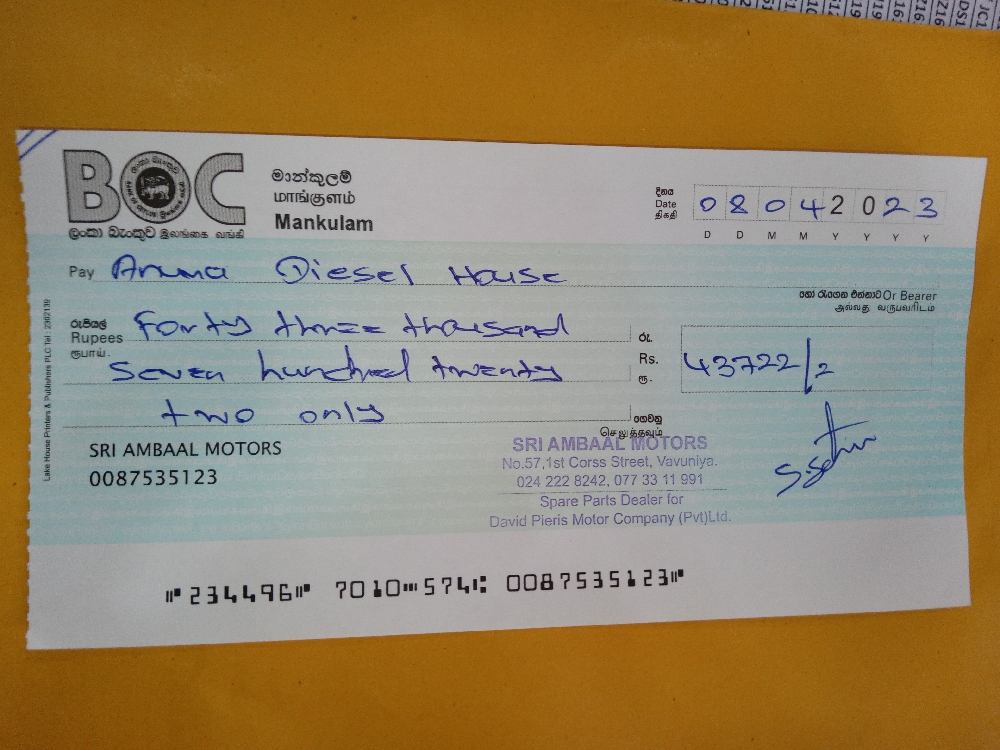 BOC
ලංකා බැංකුව இலங்கை வங்கி
මාන්කුලම්
மாங்குளம்
Mankulam
දිනය
Date
திகதி
0 8 0 4 2 0 2 3
D D M M Y Y Y Y
Pay Aruna Diesel House
හෝ රැගෙන එන්නාට Or Bearer
அல்லது வருபவரிடம்
රුපියල්
Rupees
ரூபாய்.
Forty three thousand
seven hundred twenty
two only
රු.
Rs.
ரூ.
43722/2
ගෙවනු
செலுத்தவும்
SRI AMBAAL MOTORS
0087535123
SRI AMBAAL MOTORS
No.57,1st Corss Street, Vavuniya.
024 222 8242, 077 33 11 991
Spare Parts Dealer for
David Pieris Motor Company (Pvt)Ltd.
Lake House Printers & Publishers PLC Tel : 2362139
⑈234496⑈ 7010⑉574⑆ 0087535123⑈